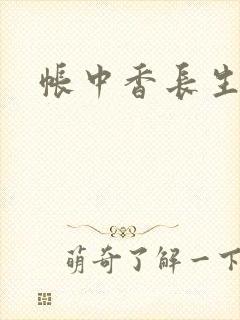 帐中香長生
萌奇了解一下